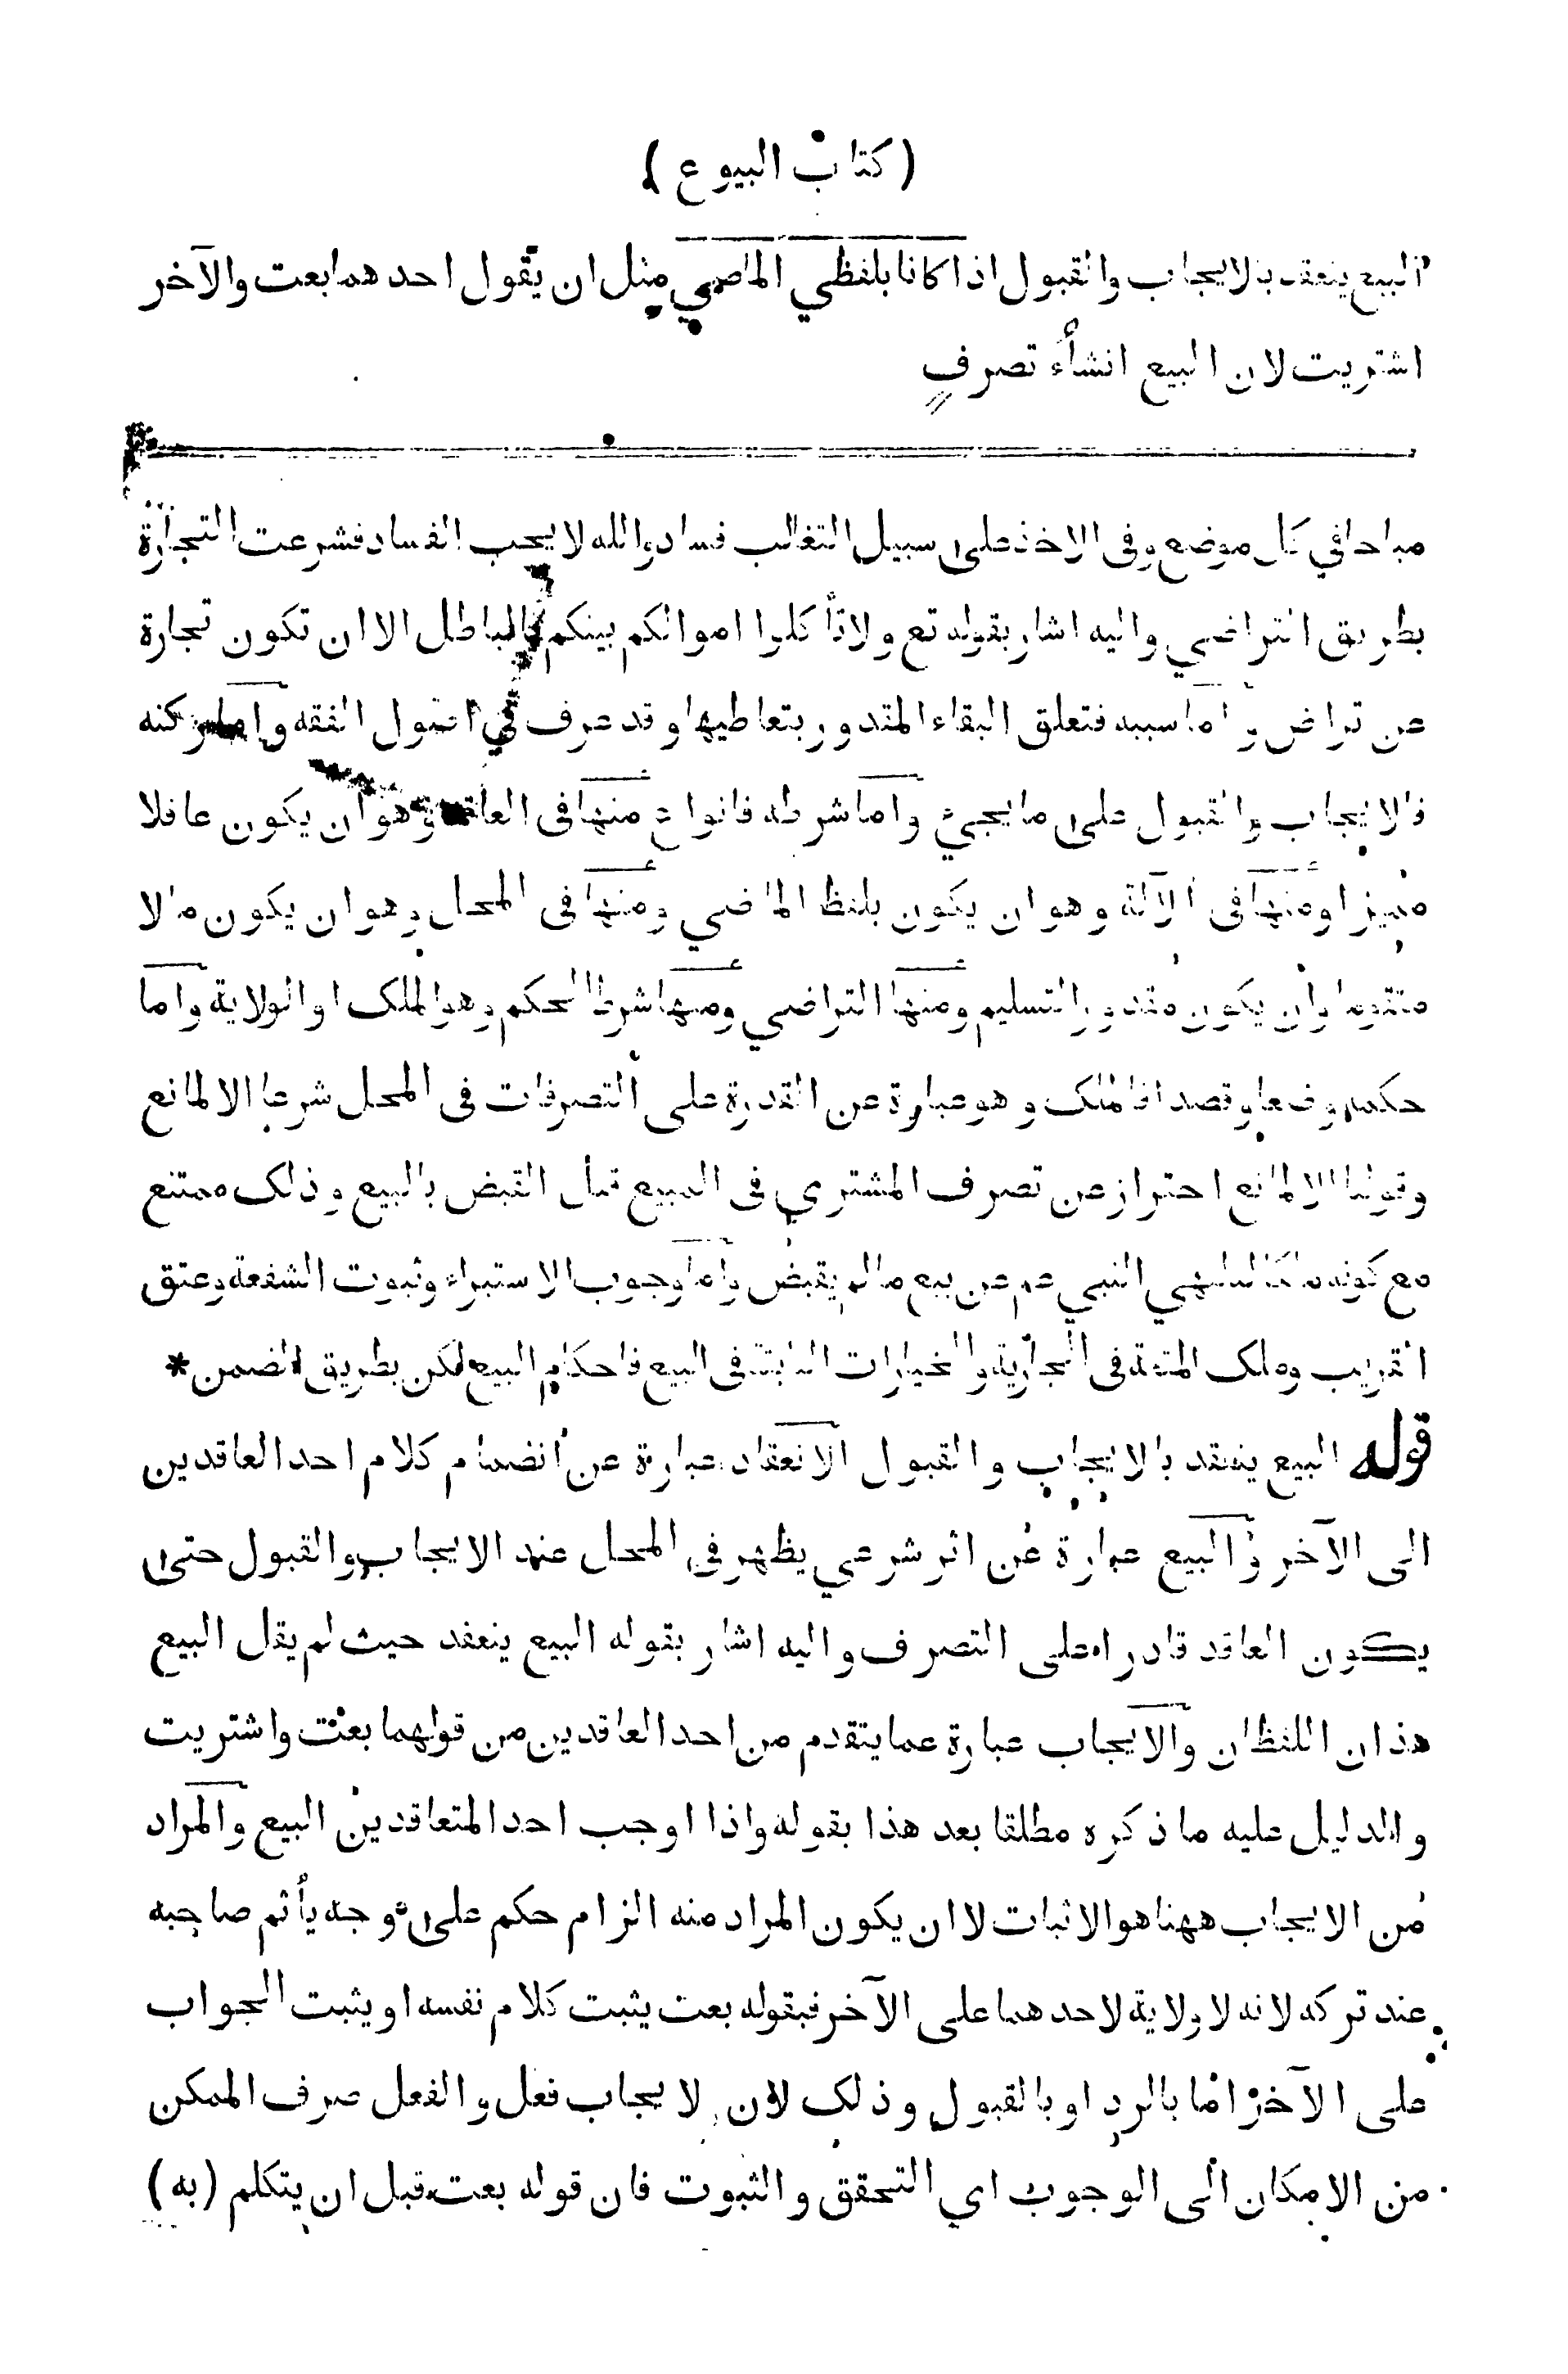 ( كتاب البيوع )
البيع ينعقد بالايجاب والقبول اذا كانا بلفظي الماضي مثل ان يقول احدهما بعت والآخر
اشتريت لان البيع انشاء تصرف
مباحا في كل موضع وفى الاخذ على سبيل التغالب فساد والله لا يحب الفساد فشرعت التجارة
بطريق التراضي واليه اشار بقوله تع ولا تأكلوا اموالكم بينكم بالباطل الا ان تكون تجارة
عن تراض واما سببه فتعلق البقاء المقدور بتعاطيها وقد عرف في اصول الفقه واما ركنه
فالايجاب والقبول على ما يجيء واما شرطه فانواع منها فى العاقد وهو ان يكون عاقلا
مميزا ومنها فى الآلة وهو ان يكون بلفظ الماضي ومنها فى المحل وهو ان يكون مالا
متقوما وان يكون مقدور التسليم ومنها التراضي ومنها شرط الحكم وهو الملك او الولاية واما
حكمه وضعا وقصدا فالملك وهو عبارة عن القدرة على التصرفات فى المحل شرعا الا لمانع
وقولنا الا لمانع احتراز عن تصرف المشتري فى المبيع قبل القبض بالبيع وذلك ممتنع
مع كونه مالكا لنهي النبي عم عن بيع مالم يقبض واما وجوب الاستبراء وثبوت الشفعة وعتق
القريب وملك المتعة فى الجارية والخيارات الثابتة فى البيع فاحكام البيع لكن بطريق الضمن *
قوله البيع ينعقد بالايجاب والقبول الانعقاد عبارة عن انضمام كلام احد العاقدين
الى الآخر والبيع عبارة عن اثر شرعي يظهر فى المحل عند الايجاب والقبول حتى
يكون العاقد قادرا على التصرف واليه اشار بقوله البيع ينعقد حيث لم يقل البيع
هذان اللفظان والايجاب عبارة عما يتقدم من احد العاقدين من قولهما بعت واشتريت
والدليل عليه ما ذكره مطلقا بعد هذا بقوله واذا اوجب احد المتعاقدين البيع والمراد
من الايجاب ههنا هو الاثبات لا ان يكون المراد منه الزام حكم على وجه يأثم صاحبه
عند تركه لانه لا ولاية لاحدهما على الآخر فبقوله بعت يثبت كلام نفسه او يثبت الجواب
على الآخر اما بالرد او بالقبول وذلك لان لا يجاب فعل والفعل صرف الممكن
من الامكان الى الوجوب اي التحقق والثبوت فان قوله بعت قبل ان يتكلم (به)